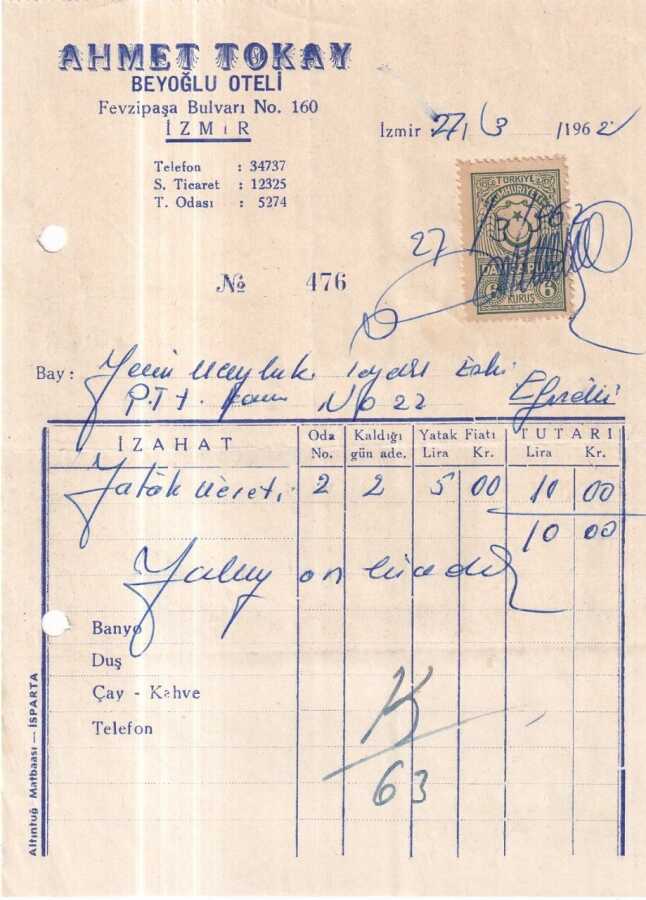 AHMET TOKAY
BEYOĞLU OTELİ
Fevzipaşa Bulvarı No. 160
İZMİR
İzmir 27/3/1962
Telefon : 34737
S. Ticaret : 12325
T. Odası : 5274
TÜRKİYE
CUMHURİYETİ
27/3/962
DAMGA PULU
6 KURUŞ 6
№ 476
Bay:
P.T.T. No 22
İZAHAT Oda No. Kaldığı gün ade. Yatak Fiatı Lira Kr. TUTARI Lira Kr.
Yatak ücreti 2 2 5 00 10 00
10 00
Yalnız on liradır
Banyo
Duş
Çay - Kahve
Telefon
63
Altıntuğ Matbaası — ISPARTA